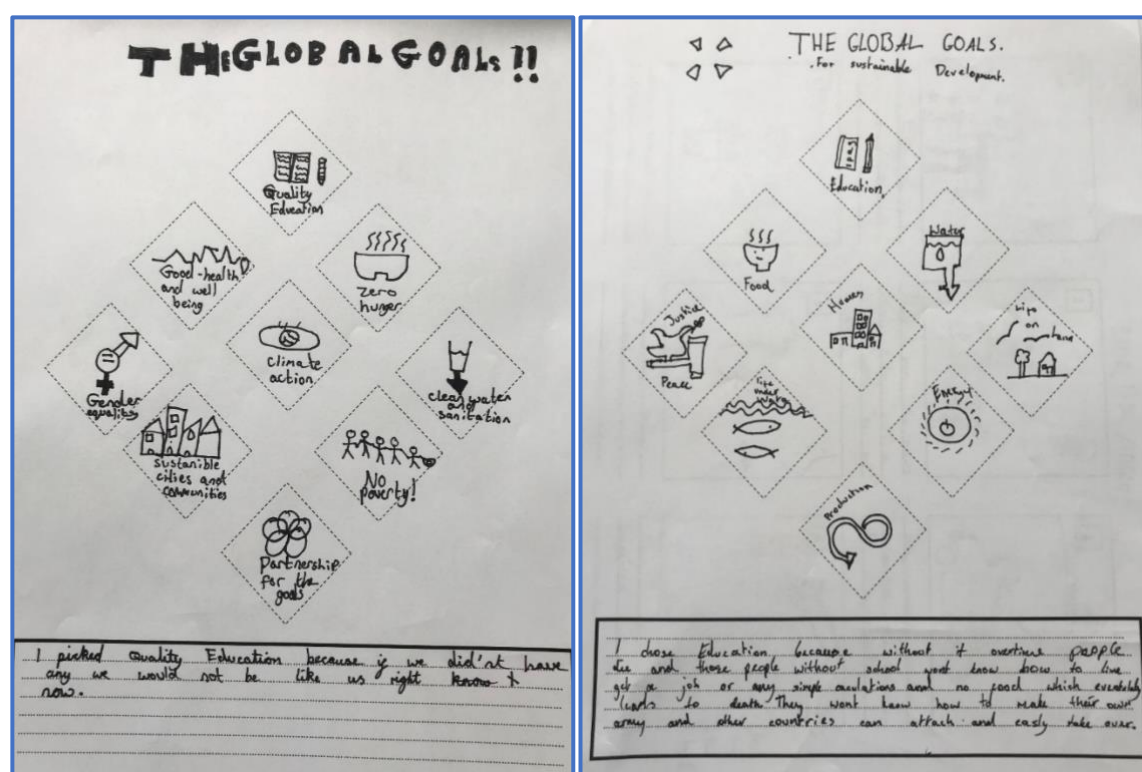 THE GLOBAL GOALS!!
Quality
Education
Good-health
and well
being
Zero
hunger
Gender
equality
climate
action
clean water
and
sanitation
sustanible
cities and
communities
No
poverty!
Partnership
for the
goals
I picked Quality Education because if we did'nt have
any we would not be like us right know
now.
THE GLOBAL GOALS.
For sustainable Development.
Education
Food
Water
Justice
Peace
Life
on
land
life under
water
Energy
Production
I chose Education because without it overtime people
die and those people without school wont know how to live
get a job or any simple and no food which eventually
leads to death They wont know how to make their own
army and other countries can attach and easly take over.